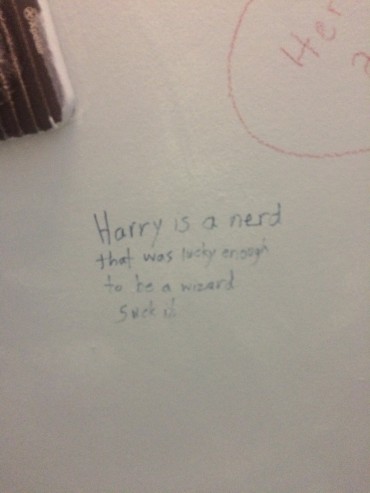 Her
a
Harry is a nerd
that was lucky enough
to be a wizard
Suck it